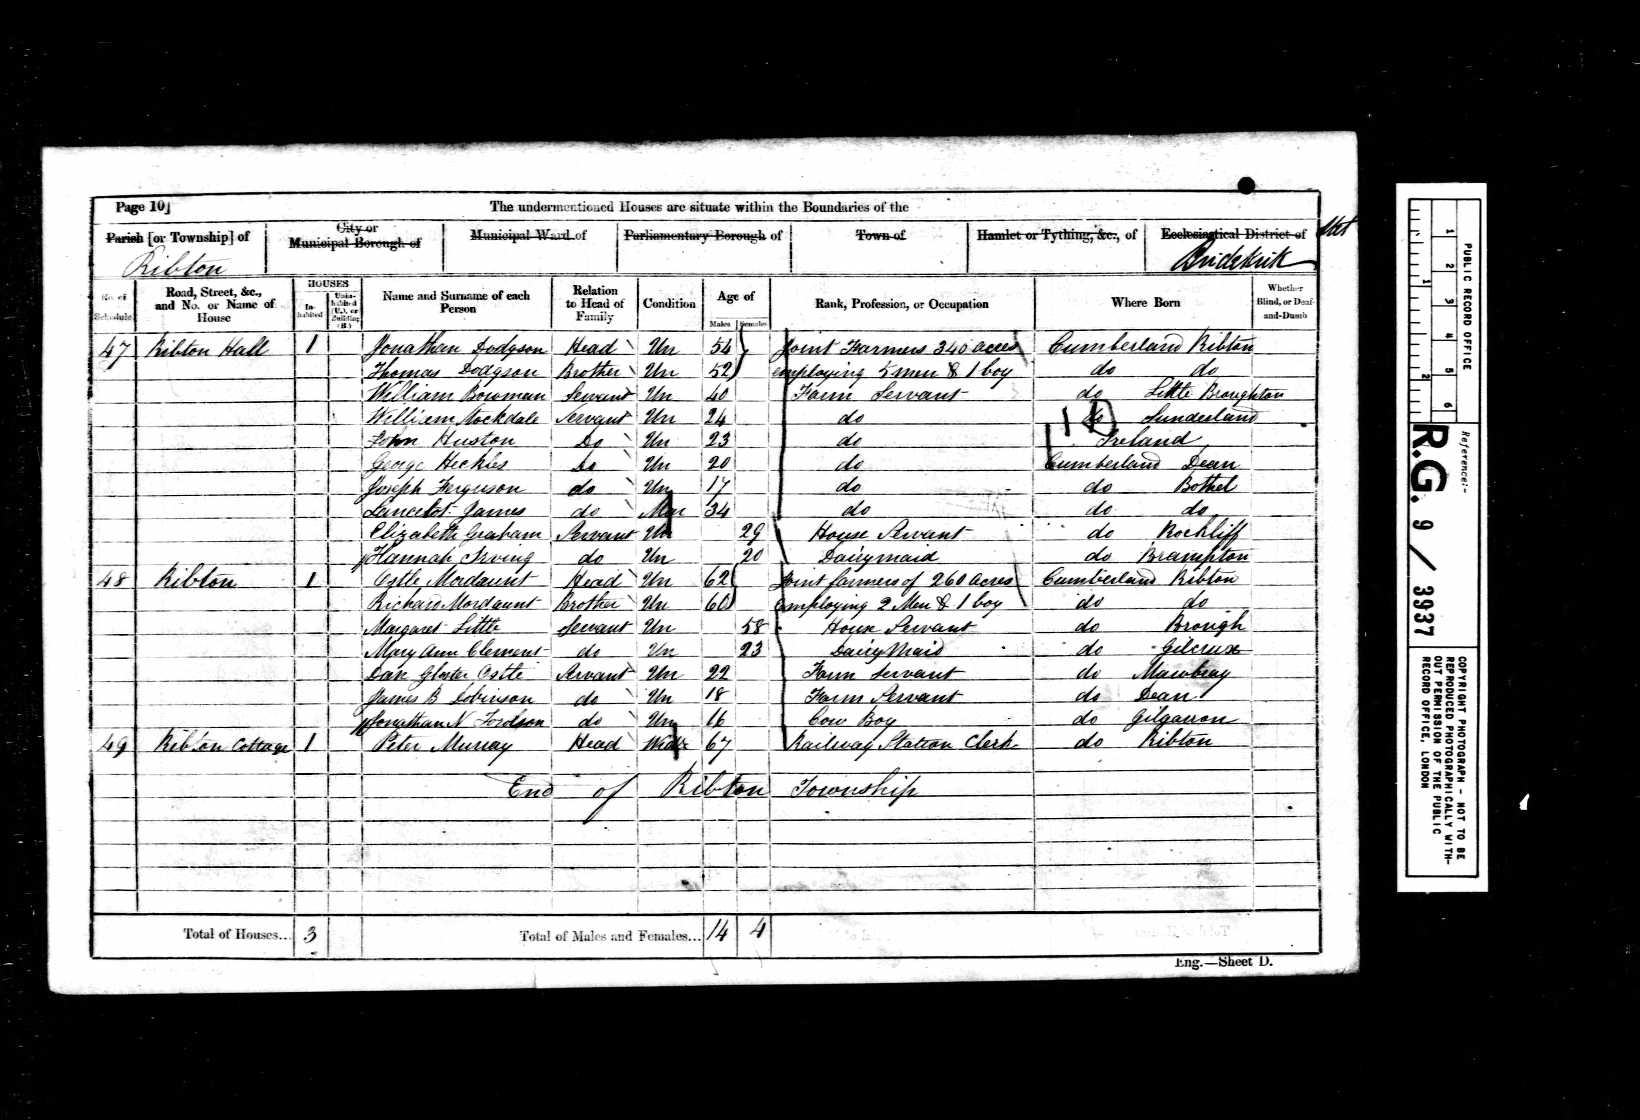 Page 10]
The undermentioned Houses are situate within the Boundaries of the
Parish [or Township] of
City or Municipal Borough of
Municipal Ward of
Parliamentary Borough of
Town of
Hamlet or Tything, &c., of
Ecclesiastical District of
Ribton
Bridekirk
No. of Schedule
Road, Street, &c., and No. or Name of House
HOUSES
Inhabited
Uninhabited (U.), or Building (B.)
Name and Surname of each Person
Relation to Head of Family
Condition
Age of
Males
Females
Rank, Profession, or Occupation
Where Born
Whether Blind, or Deaf-and-Dumb
47 Ribton Hall 1 Jonathan Dodgson Head Un 54 Joint Farmers 340 acres Cumberland Ribton
Thomas Dodgson Brother Un 52 employing 5 men & 1 boy do do
William Bowman Servant Un 40 Farm Servant do Little Broughton
William Stockdale Servant Un 24 do do Sunderland
John Huston Do Un 23 do Ireland
George Heckles Do Un 20 do Cumberland Dean
Joseph Ferguson do Un 17 do do Bothel
Lancelot James do Mar 34 do do do
Elizabeth Graham Servant Un 29 House Servant do Rockliff
Hannah Irving do Un 20 Dairymaid do Brampton
48 Ribton 1 Ostle Mordaunt Head Un 62 Joint farmers of 260 acres Cumberland Ribton
Richard Mordaunt Brother Un 60 employing 2 Men & 1 boy do do
Margaret Little Servant Un 58 House Servant do Brough
Mary Ann Clement do Un 23 Dairy Maid do Gilcrux
Dan Ostle Servant Un 22 Farm Servant do Mawbray
James B Dobinson do Un 18 Farm Servant do Dean
Jonathan N do Un 16 Cow Boy do Gilgarron
49 Ribton Cottage 1 Peter Murray Head Widr 67 Railway Station Clerk do Ribton
End of Ribton Township
Total of Houses... 3
Total of Males and Females... 14 4
Eng.—Sheet D.
PUBLIC RECORD OFFICE
1 2 3 4 5 6
1 2
Reference:-
R.G. 9 / 3937
COPYRIGHT PHOTOGRAPH - NOT TO BE
REPRODUCED PHOTOGRAPHICALLY WITH-
OUT PERMISSION OF THE PUBLIC
RECORD OFFICE, LONDON